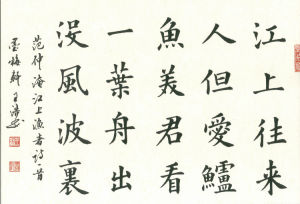 江上往来
人但愛鱸
魚美君看
一葉舟出
沒風波裏
范仲淹江上漁者詩一首